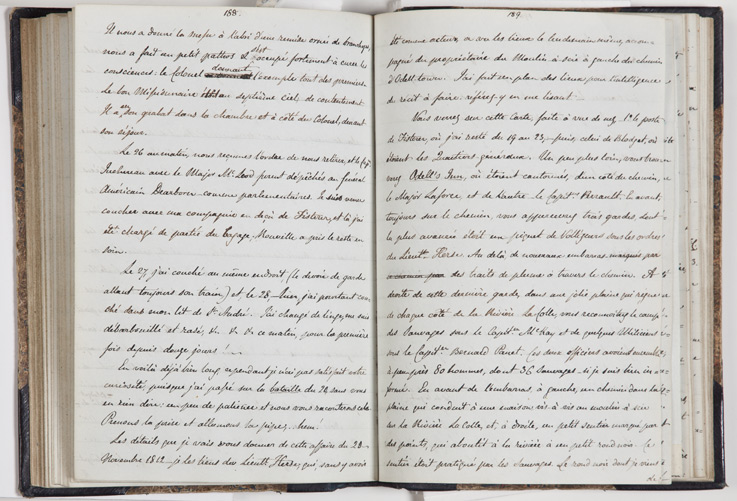 188.
Il nous a donné la messe à l'abri d'une remise ornée de branches,
nous a fait un petit pathos et s'est occupé fortement à curer les
consciences: le Colonel donnant l'exemple tout des premiers.
Le bon Missionnaire était au septième ciel de contentement.
Il a eu son grabat dans la chambre et à côté du Colonel, durant
son séjour.
Le 26 au matin, nous reçumes l'ordre de nous retirer, et le Capt.
Juchereau avec le Major McLeod furent dépêchés au général
Américain Dearborn comme parlementaires. Je suis venu
coucher avec ma compagnie en deçà de Fisterer, et là j'ai
été chargé de partie du bagage, Rouville a pris le reste en
soin.
Le 27 j'ai couché au même endroit (le devoir de garde
allant toujours son train) et le 28 hier, j'ai pourtant cou-
ché dans mon lit de St. André. J'ai changé de linge, me suis
débarbouillé et rasé, &. &. &. ce matin, pour la première
fois depuis douze jours!
En voilà déjà bien long cependant je n'ai pas satisfait votre
curiosité, puisque j'ai passé sur la bataille du 28 sans vous
en rien dire: un peu de patience, et nous vous raconterons cela
Prenons la prise et allumons la pipe, hem!
Les détails que je vais vous donner de cette affaire du 28
Novembre 1812 je les tiens du Lieutt. Herse, qui, sans y avoir
189.
été comme acteur, a vu les lieux le lendemain même, accom-
pagné du propriétaire du Moulin à scie à gauche du chemin
d'Odell town. J'ai fait un plan des lieux pour l'intelligence
du récit à faire: référez-y en me lisant.
Vous verrez sur cette Carte, faite à vue de nez, 1° le poste
de Fisterer, où j'ai resté du 19 au 23, puis celui de Blodget, où
étaient les Quartiers généraux. Un peu plus loin, vous trou-
vez Odell's Inn, où étaient cantonnés, d'un côté du chemin,
le Major Laforce, et de l'autre le Capitne Perrault. En avant,
toujours sur le chemin, vous appercevrez trois gardes dont
la plus avancée était un piquet de Voltigeurs sous les ordres
du Lieutt. Herse. Au delà de nouveaux embarras marqués par
des traits de plume à travers le chemin. A
droite de cette dernière garde, dans une jolie plaine qui règne
de chaque côté de la Rivière La Colle, vous reconnaîtrez le camp
des Sauvages sous le Capitne McKay et de quelques Miliciens
sous le Capitne Bernard Panet. Ces deux officiers avaient ensemble
à peu près 80 hommes, dont 36 Sauvages si je suis bien in-
formé. En avant de l'embarras, à gauche, un chemin dans la
plaine qui conduit à une maison vis à vis un moulin à scie
sur la Rivière La Colle, et, à droite, un petit sentier marqué par
des points, qui aboutit à la rivière à un petit rond noir. Ce
sentier était pratiqué par les Sauvages. Le rond noir dont je viens